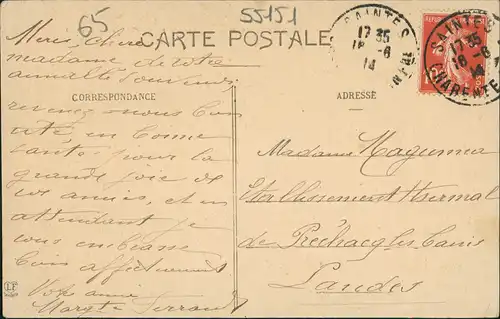 65
55151
CARTE POSTALE
SAINTES
17 35
18 -6
14
SAINTES
17 35
18 -6
14
CHARENTE
CORRESPONDANCE
ADRESSE
Merci, chère
madame de votre
aimable souvenir
revenez-nous bien
vite en bonne
santé pour la
grande joie de
vos amies, et en
attendant je
vous embrasse
bien affectueusement
Votre amie
Margte
Madame
Etablissement thermal
de Préchacq les bains
Landes